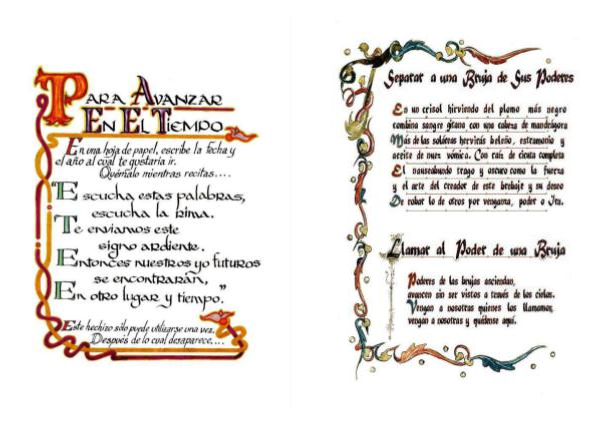 Para Avanzar
En El Tiempo
En una hoja de papel, escribe la fecha y
el año al cual te gustaría ir.
Quémalo mientras recitas....
"Escucha estas palabras,
escucha la rima.
Te enviamos este
signo ardiente.
Entonces nuestros yo futuros
se encontrarán,
En otro lugar y tiempo."
Este hechizo sólo puede utilizarse una vez.
Después de lo cual desaparece....
Separar a una Bruja de Sus Poderes
En un crisol hirviendo del plomo más negro
combina sangre gitana con una cabeza de mandrágora
Más de las soláceas hervirás beleño, estramonio y
aceite de nuez vómica. Con raíz de cicuta completa
El nauseabundo trago y oscuro como la fuerza
y el arte del creador de este brebaje y su deseo
De robar lo de otros por venganza, poder o Ira.
Llamar al Poder de una Bruja
Poderes de las brujas asciendan,
avancen sin ser vistos a través de los cielos.
Vengan a nosotras quienes los llamamos,
vengan a nosotras y quédense aquí.